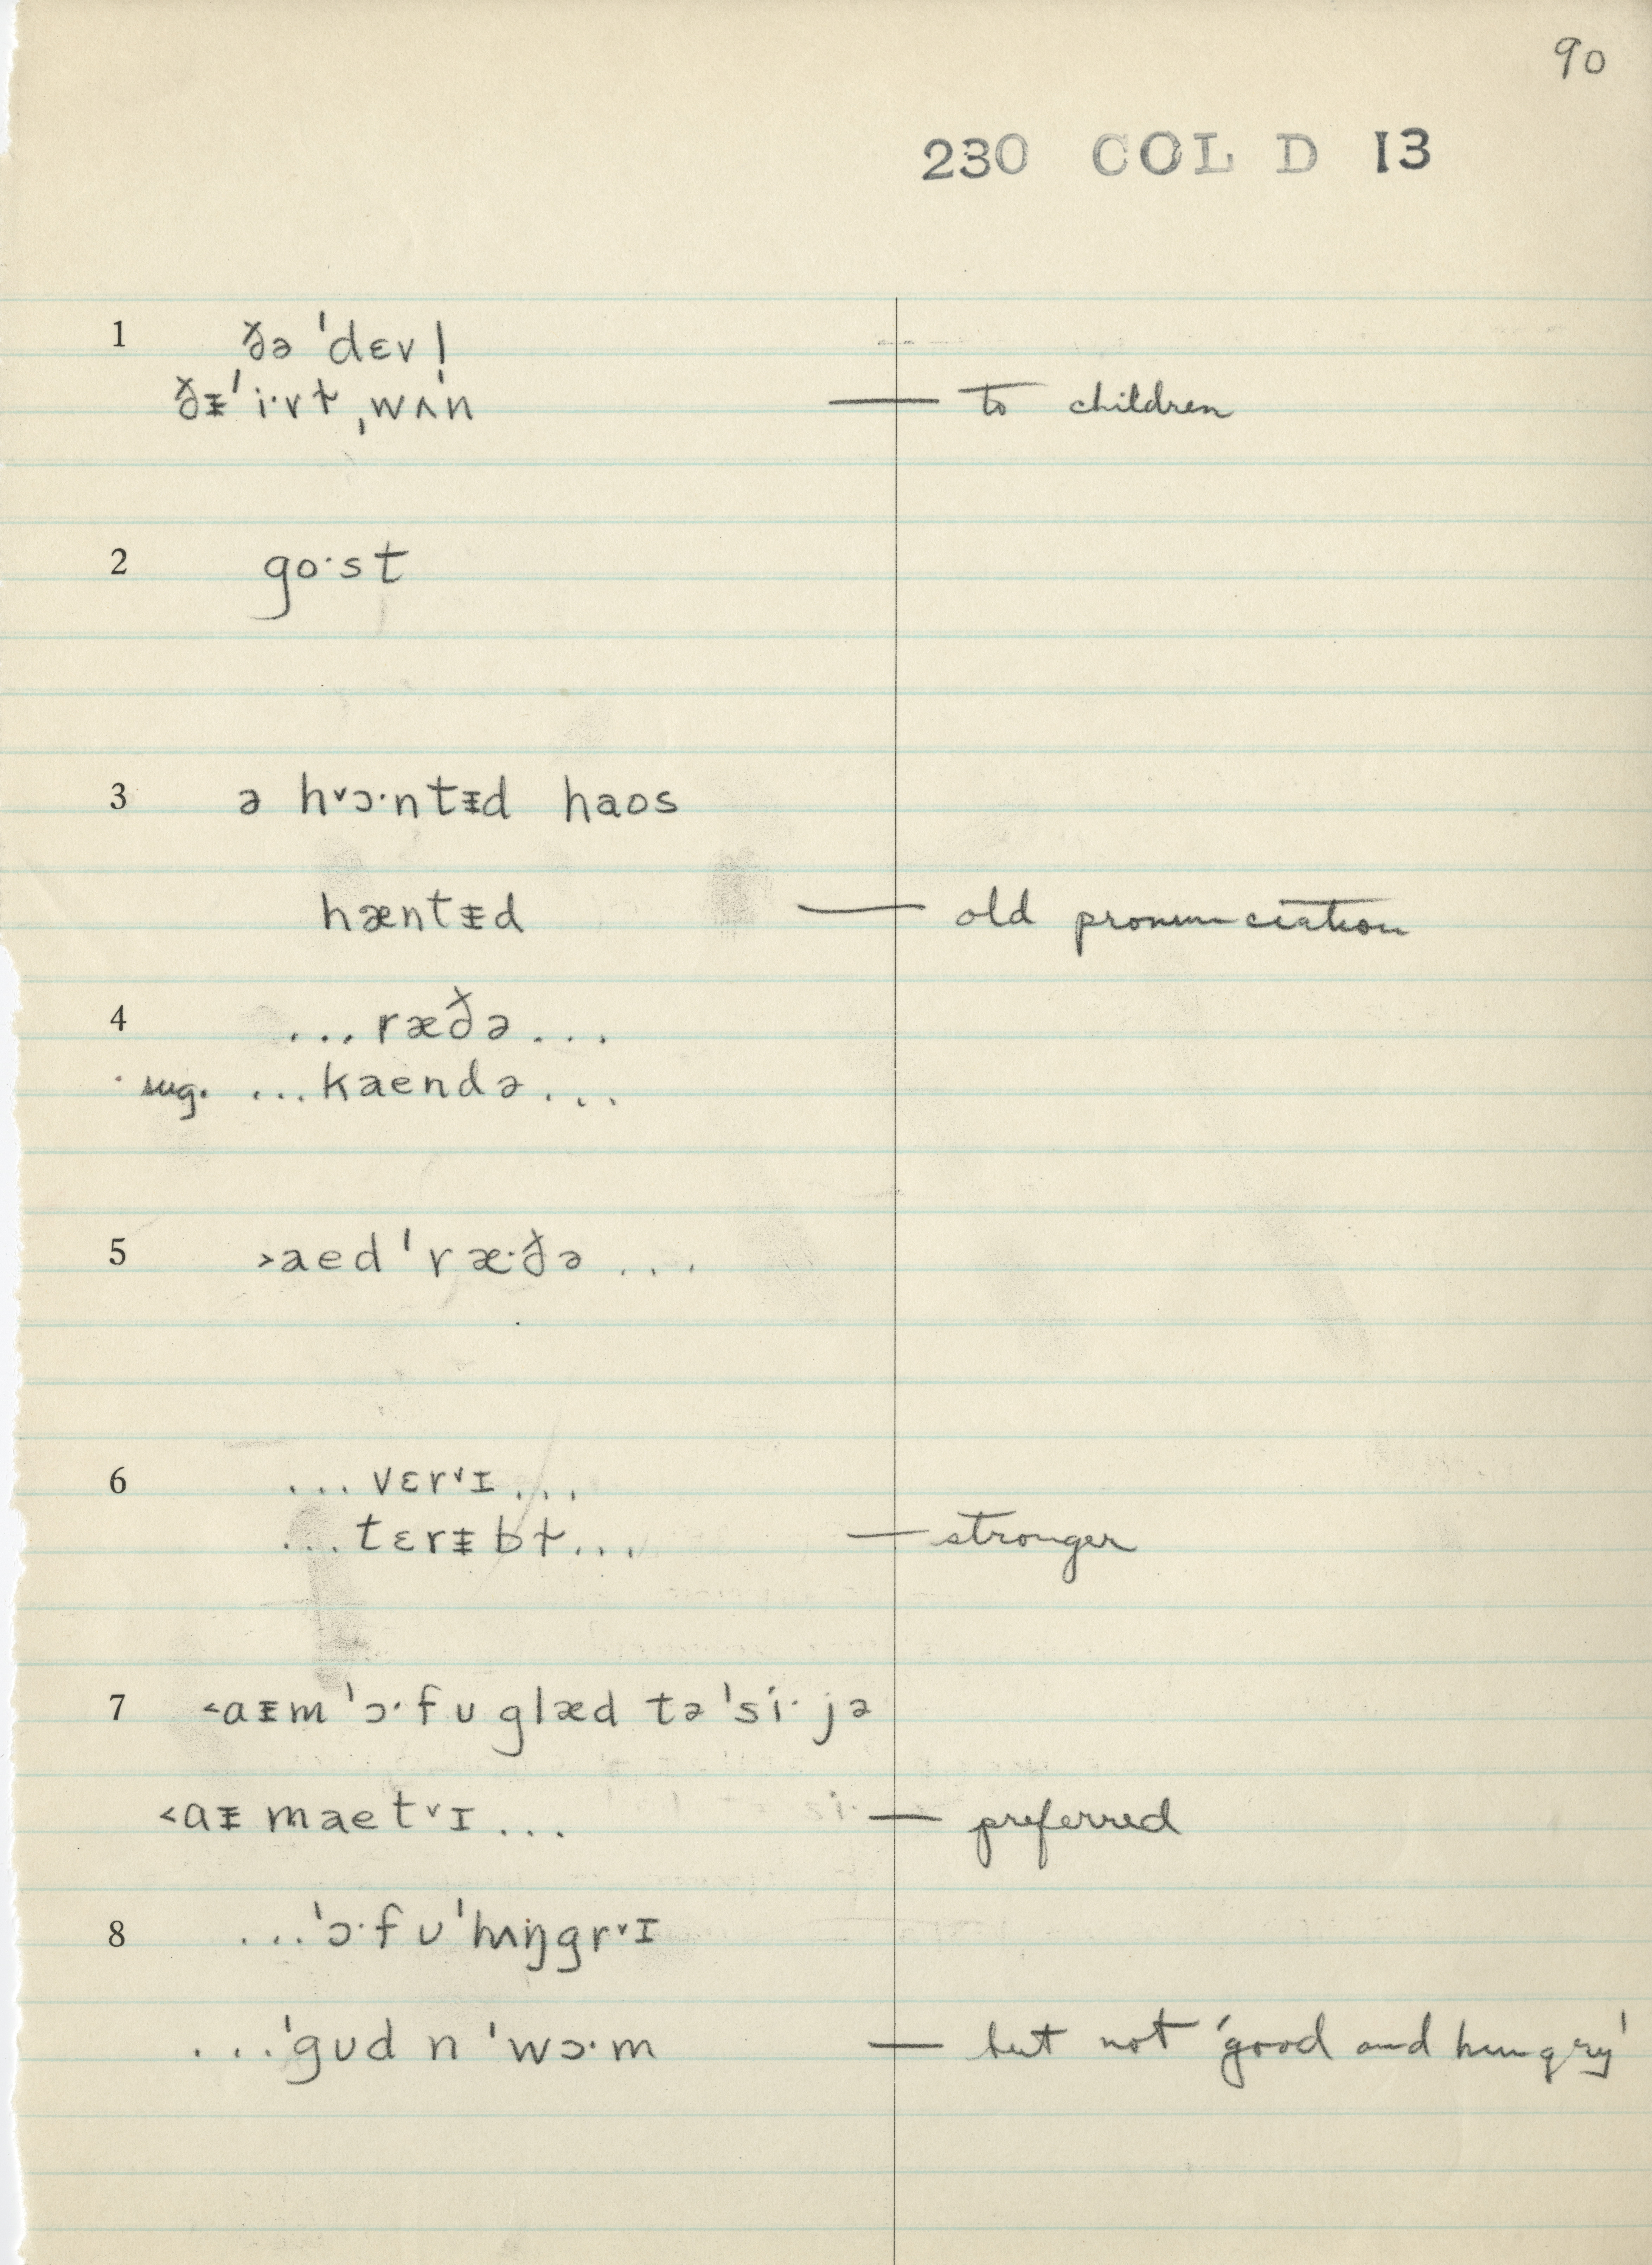 90
230 COL D 13
1 ðə ˈdɛvl̩
ðᵻˈi·vɫ ˌwʌn — to children
2 go·st
3 ə h˅ɔ·ntᵻd haos
hæntᵻd — old pronunciation
4 ...ræðə...
sug. ...kaendə...
5 ˃aedˈræ·ðə ...
6 ...vɛr˅ɪ...
...tɛrᵻbɫ... — stronger
7 ˂aᵻm ˈɔ·fʊ glæd tə ˈsi· jə
˂aᵻ maet˅ɪ ... — preferred
8 ...ˈɔ·fʊ ˈhʌŋgr˅ɪ
...ˈgʊd n ˈwɔ·m — but not 'good and hungry'